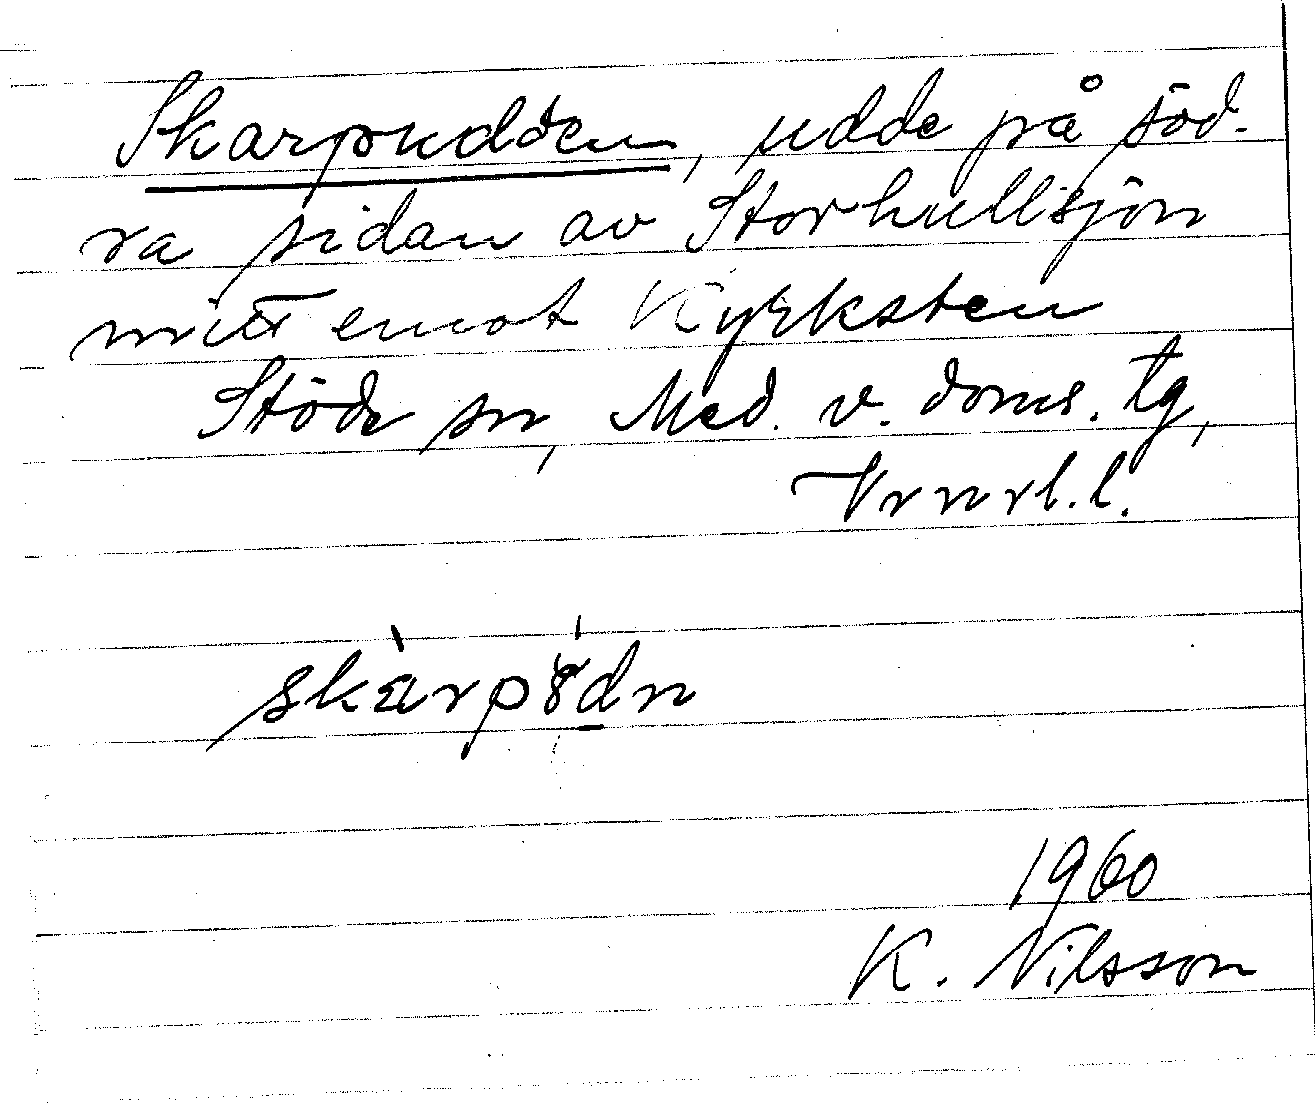 Skarpudden, udde på söd-
ra sidan av Storhullsjön
mitt emot Kyrksten
Stöde sn, Med. v. doms. tg,
Vrnrl. l.
skàrpö́dn
1960
K. Nilsson